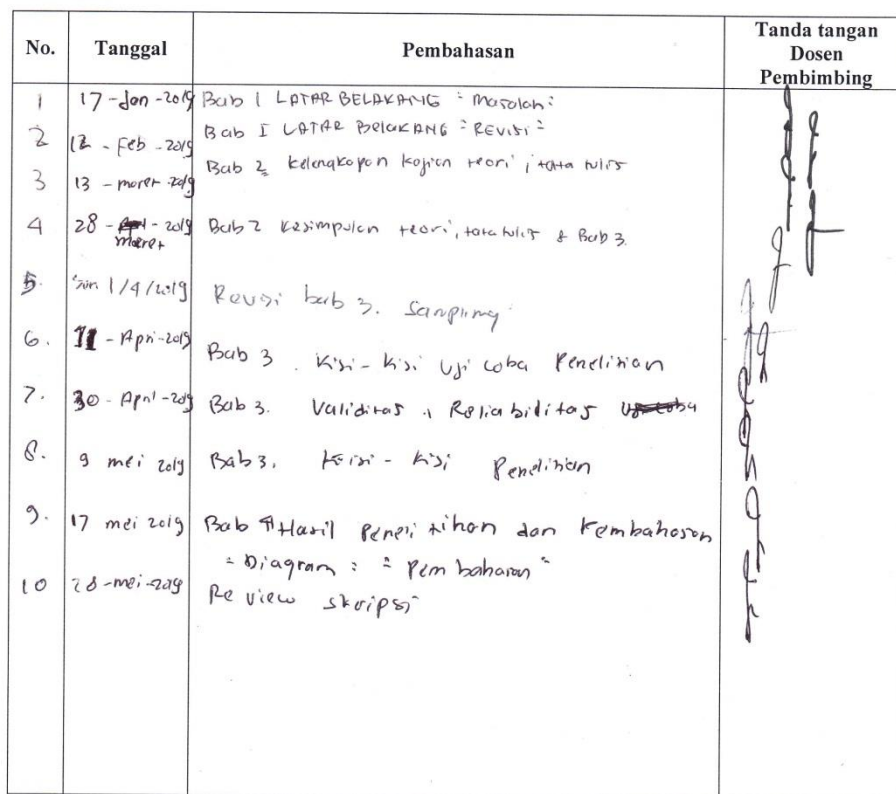 No. Tanggal Pembahasan Tanda tangan Dosen Pembimbing
1 17-Jan-2019 Bab I LATAR BELAKANG "Masalah"
2 12-Feb-2019 Bab I LATAR BELAKANG "REVISI"
3 13-maret-2019 Bab 2 kelengkapan kajian teori, tata tulis
4 28-maret-2019 Bab 2 kesimpulan teori, tata tulis & Bab 3
5. 1/4/2019 Revisi bab 3. Sampling
6. 11-Apri-2019 Bab 3. Kisi-Kisi Uji coba Penelitian
7. 30-April-2019 Bab 3. Validitas, Reliabiditas
8. 9 mei 2019 Bab 3. Kisi-Kisi Penelitian
9. 17 mei 2019 Bab Hasil Penelitihan dan Pembahasan
"Diagram" "Pembahasan"
10 28-mei-2019 Review skripsi